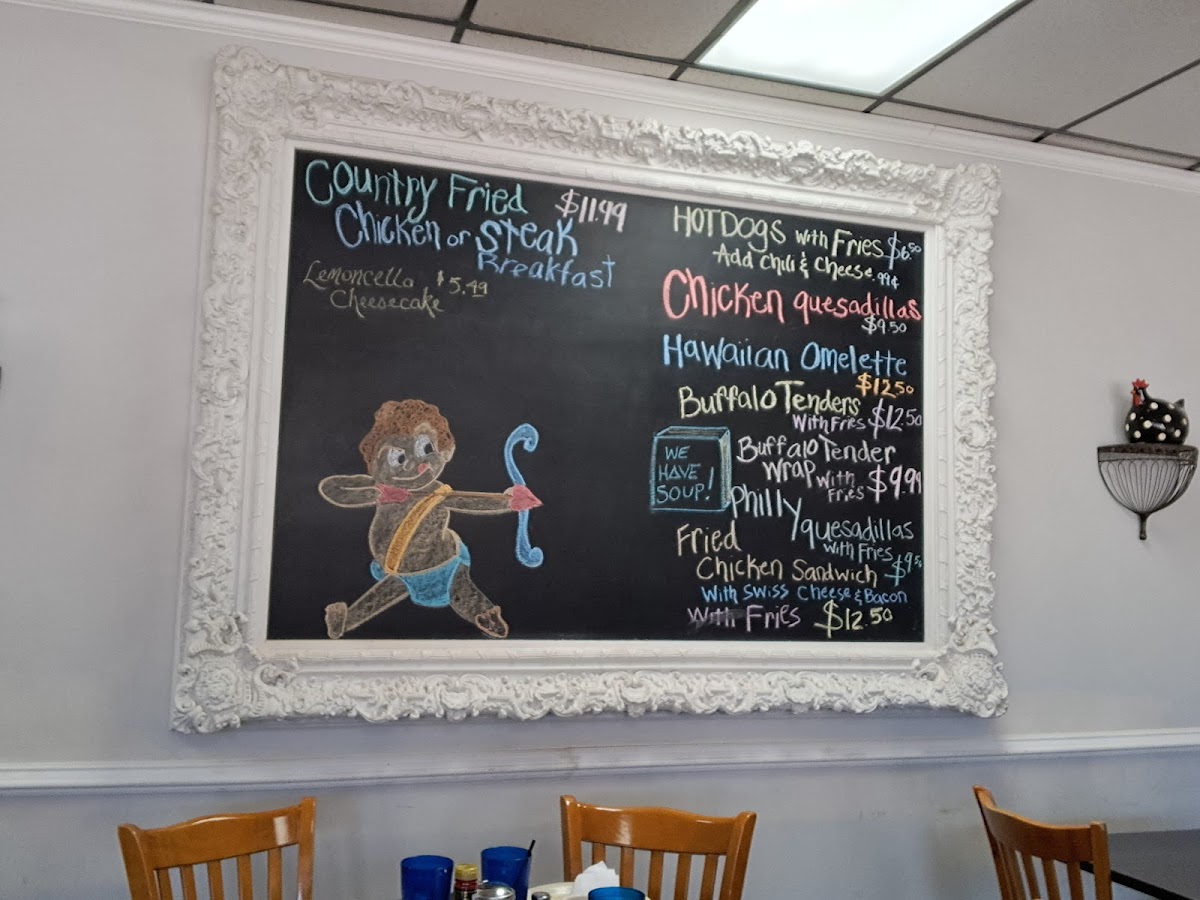 Country Fried $11.99
Chicken or Steak
Breakfast
Lemoncella $5.49
Cheesecake
HOTDOGS with Fries $6.50
Add Chili & Cheese .99¢
Chicken quesadillas
$9.50
Hawaiian Omelette
$12.50
Buffalo Tenders
With Fries $12.50
WE
HAVE
SOUP!
Buffalo Tender
Wrap With
Fries $9.99
Philly
quesadillas
with Fries
Fried $9.50
Chicken Sandwich
With Swiss Cheese & Bacon
With Fries $12.50